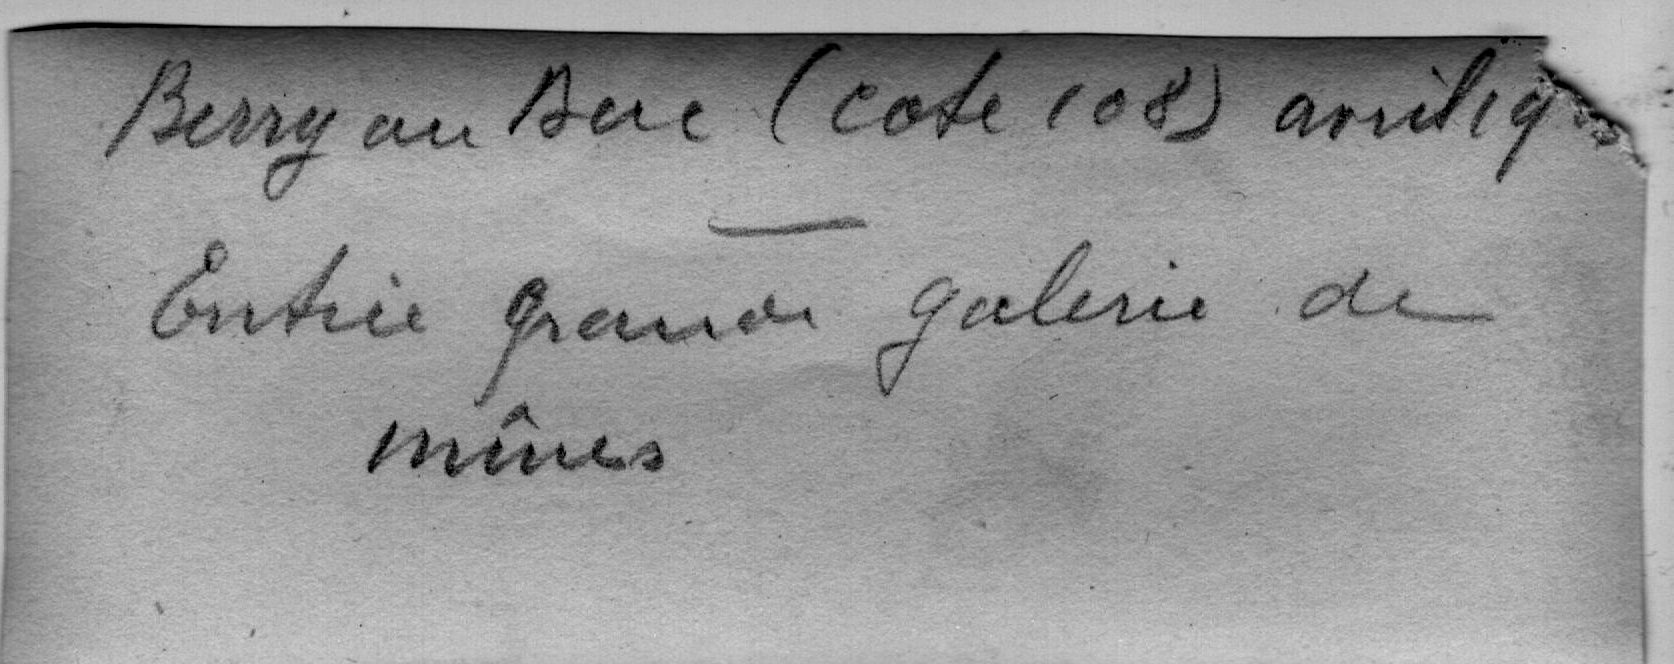 Berry au Bac (cote 108) avril 19
Entrée grande galerie de
mînes